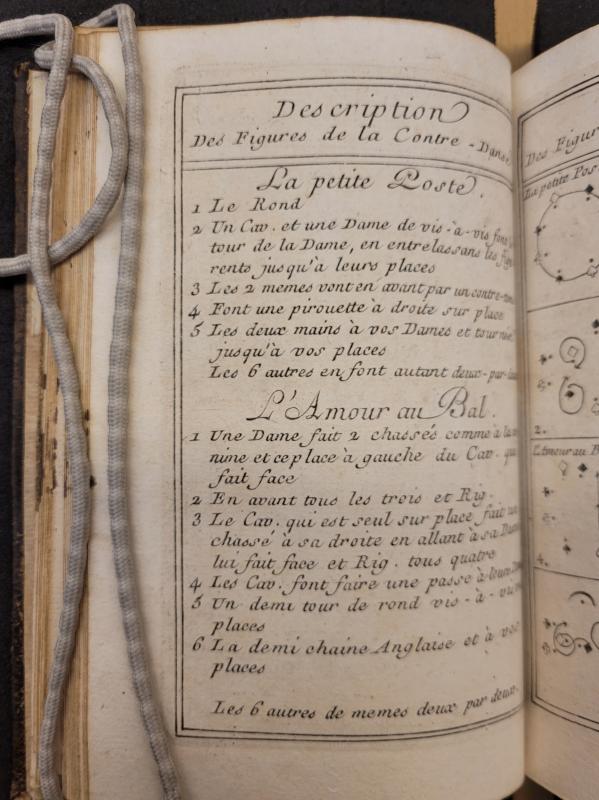 Description
Des Figures de la Contre-Danse
La petite Poste.
1 Le Rond
2 Un Cav. et une Dame de vis-à-vis font
tour de la Dame, en entrelassans les
rents jusqu'à leurs places
3 Les 2 memes vont en avant par un contre-tems
4 Font une pirouette à droite sur place
5 Les deux mains à vos Dames et tournés
jusqu'à vos places
Les 6 autres en font autant deux-par-deux
L'Amour au Bal.
1 Une Dame fait 2 chassés comme à la
nine et ce place à gauche du Cav. qui
fait face
2 En avant tous les trois et Rig.
3 Le Cav. qui est seul sur place fait un
chassé à sa droite en allant à sa Dame
lui fait face et Rig. tous quatre
4 Les Cav. font faire une passe à leurs
5 Un demi tour de rond vis-à-vis
places
6 La demi chaine Anglaise et à vos
places
Les 6 autres de memes deux par deux.
Des Figur
La petite Pos
2.
L'Amour au B
4.
6.